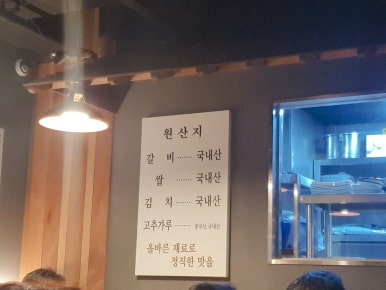 원산지
갈 비 ······· 국내산
쌀 ······· 국내산
김 치 ······· 국내산
고추가루 ······· 중국산,국내산
올바른 재료로
정직한 맛을